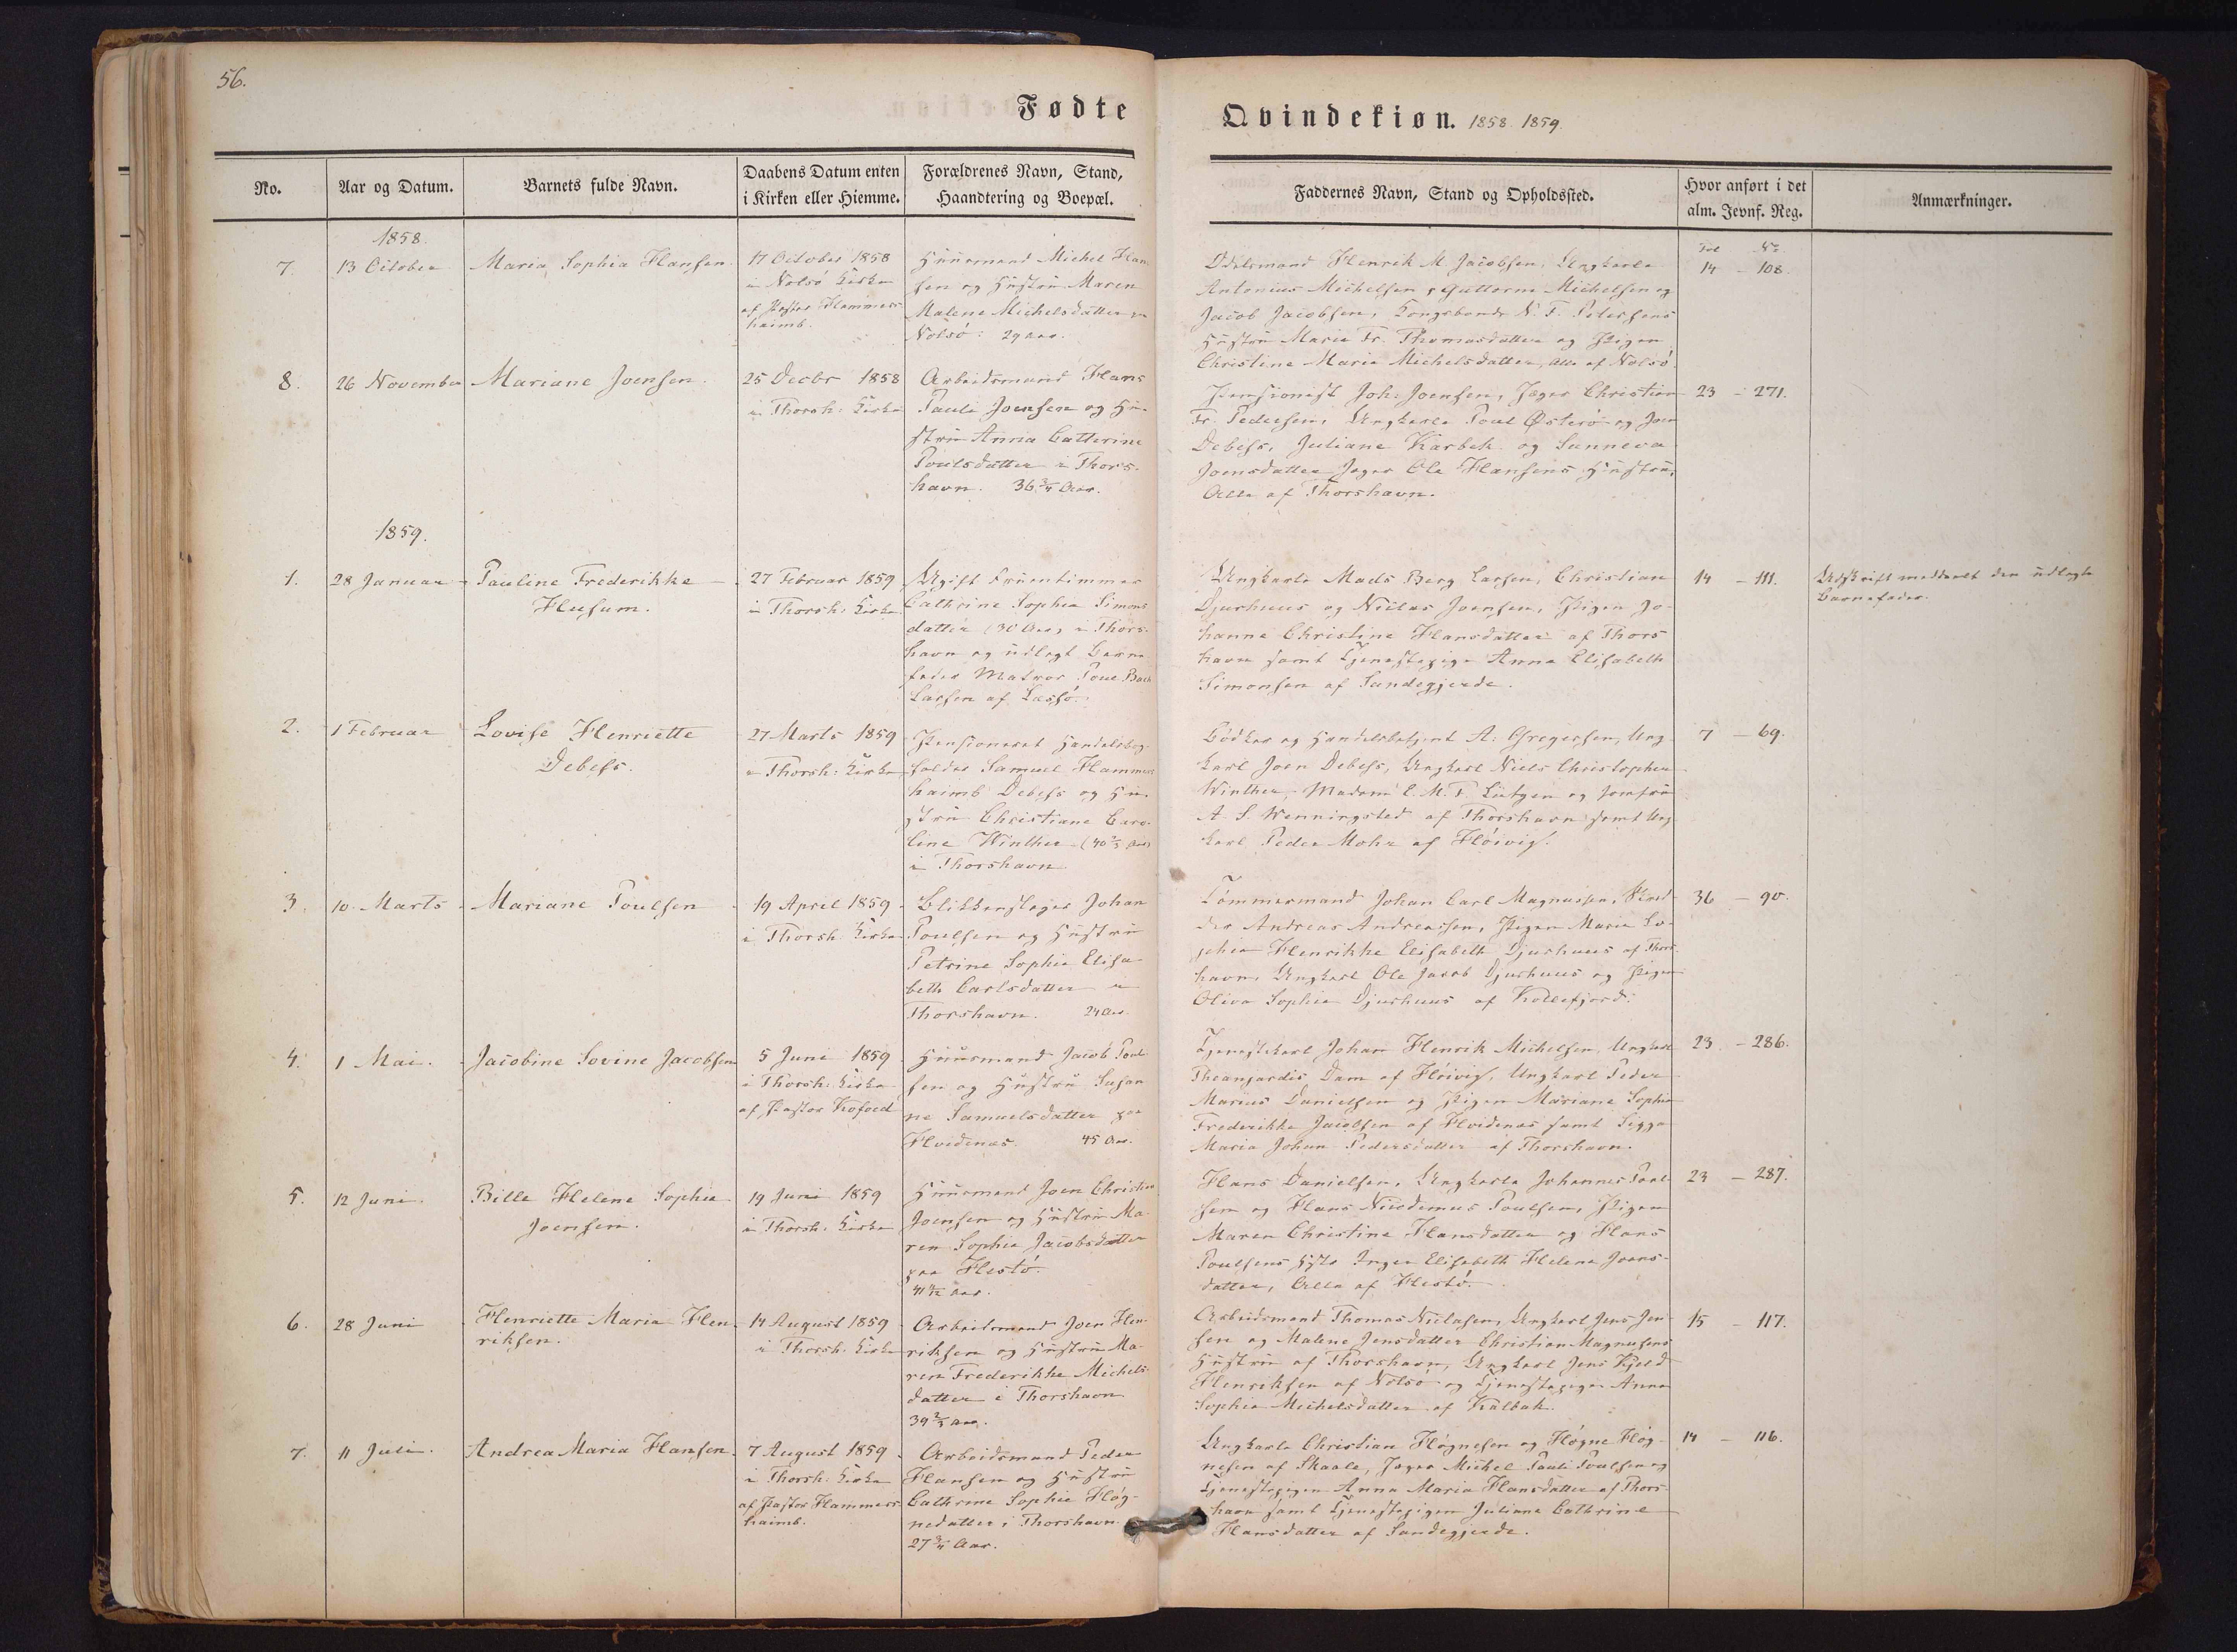 56.
Fødte
Qvindekiøn. 1858. 1859.
No.
Aar og Datum.
Barnets fulde Navn.
Daabens Datum enten
i Kirken eller Hiemme.
Forældrenes Navn, Stand,
Haandtering og Boepæl.
Faddernes Navn, Stand og Opholdssted.
Hvor anført i det
alm. Jevnf. Reg.
Anmærkninger.
1858.
7.
13 October
Maria Sophia Hansen
17 October 1858
i Nolsö Kirke
af Pastor Hammers-
haimb.
Huusmand Michel Han-
sen og Hustru Maren
Malene Michelsdatter paa
Nolsö. 29 Aar.
Odelsmand Henrik M. Jacobsen, Ungkarle
Antonius Michelsen, Guttorm Michelsen og
Jacob Jacobsen, Kongsbonde N. F. Petersens
Hustru Marie Fr. Thomasdatter og Pigen
Christine Marie Michelsdatter, alle af Nolsö.
Fol No
14 - 108.
8.
26 November
Mariane Joensen.
25 Decbr 1858
i Thorsh. Kirke
Arbeidsmand Hans
Pauli Joensen og Hu-
stru Anna Catterine
Poulsdatter i Thors-
havn. 36 3/4 Aar.
Pensionist Joh. Joensen, Jæger Christian
Fr. Pedersen, Ungkarle Poul Østerö og Joen
Debess, Juliane Kårbek og Sunneva
Joensdatter Jæger Ole Hansens Hustru,
Alle af Thorshavn.
23 - 271.
1859.
1.
28 Januar
Pauline Frederikke
Husum.
27 Februar 1859
i Thorsh. Kirke
Ugift Fruentimmer
Cathrine Sophie Simons-
datter (30 Aar) i Thors-
havn og udlagt Barne-
fader Matros Poul Bach
Larsen af Læssö.
Ungkarle Mads Berg Larsen, Christian
Djurhuus og Niclas Joensen, Pigen Jo-
hanne Christine Hansdatter af Thors-
havn samt Tjenestepige Anna Elisabeth
Simonsen af Sandegjerde.
14 - 111.
Udskrift meddeelt den udlagte
Barnefader.
2.
1 Februar
Lovise Henriette
Debess.
27 Marts 1859
i Thorsh. Kirke
Pensioneret Handelsbog-
holder Samuel Hammers-
haimb Debess og Hu-
stru Christiane Caro-
line Winther (40 2/3 Aar)
i Thorshavn
Bödker og Handelsbetjent A. Gregersen, Ung-
karl Joen Debess, Ungkarl Niels Christopher
Winther, Madam E. M. F. Lützen og Jomfru
A. S. Wenningsted af Thorshavn samt Ung-
karl Peder Mohr af Höivig.
7 - 69.
3.
10 Marts
Mariane Poulsen
19 April 1859
i Thorsh. Kirke
Blikkenslager Johan
Poulsen og Hustru
Petrine Sophie Elisa-
beth Carlsdatter i
Thorshavn. 24 Aar.
Tömmermand Johan Carl Magnussen, Skræd-
der Andreas Andreassen, Pigen Marie So-
phie Henrikke Elisabeth Djurhuus af Thors-
havn, Ungkarl Ole Jacob Djurhuus og Pigen
Oliva Sophie Djurhuus af Kollefjord.
36 - 90.
4.
1 Mai.
Jacobine Sovine Jacobsen
5 Juni 1859
i Thorsh. Kirke
af Pastor Kofoed
Huusmand Jacob Poul-
sen og Hustru Susan-
ne Samuelsdatter paa
Hvidenæs. 45 Aar.
Tjenestekarl Johan Henrik Michelsen, Ungkarl
Theanjardis Dam af Höivig, Ungkarl Peder
Marius Danielsen og Pigen Mariane Sophie
Frederikke Jacobsen af Hvidenæs samt Sigga
Maria Johan Pedersdatter af Thorshavn.
23 - 286.
5.
12 Juni.
Bille Helene Sophie
Joensen.
19 Juni 1859
i Thorsh. Kirke
Huusmand Joen Christian
Joensen og Hustru Ma-
ren Sophie Jacobsdatter
paa Hestö.
Hans Danielsen, Ungkarle Johannes Poul-
sen og Hans Nicodemus Poulsen, Pigen
Maren Christine Hansdatter og Hans
Poulsens Inger Elisabeth Helene Joens-
datter, Alle af Hestö.
23 - 287.
6.
28 Juni
Henriette Maria Hen-
riksen.
14 August 1859
i Thorsh. Kirke
Arbeidsmand Joen Hen-
riksen og Hustru Ma-
ren Frederikke Michels-
datter i Thorshavn
39 2/3 Aar.
Arbeidsmand Thomas Niclasen, Ungkarl Jens Jen-
sen og Malene Jensdatter Christian Magnusens
Hustru af Thorshavn, Ungkarl Jens Kjeld
Henriksen af Nolsö og Tjenestepigen Anna
Sophie Michelsdatter af Kalbak.
15 - 117.
7.
11 Juli.
Andrea Maria Hansen.
7 August 1859
i Thorsh. Kirke
af Pastor Hammers-
haimb.
Arbeidsmand Peder
Hansen og Hustru
Cathrine Sophie Høg-
nedatter i Thorshavn.
27 3/4 Aar.
Ungkarle Christian Høgnesen og Høgne Høg-
nesen af Skaale, Jæger Michel Pauli Poulsen og
Tjenestepigen Anna Maria Hansdatter af Thors-
havn samt Tjenestepigen Juliane Cathrine
Hansdatter af Sandegjerde.
14 - 116.